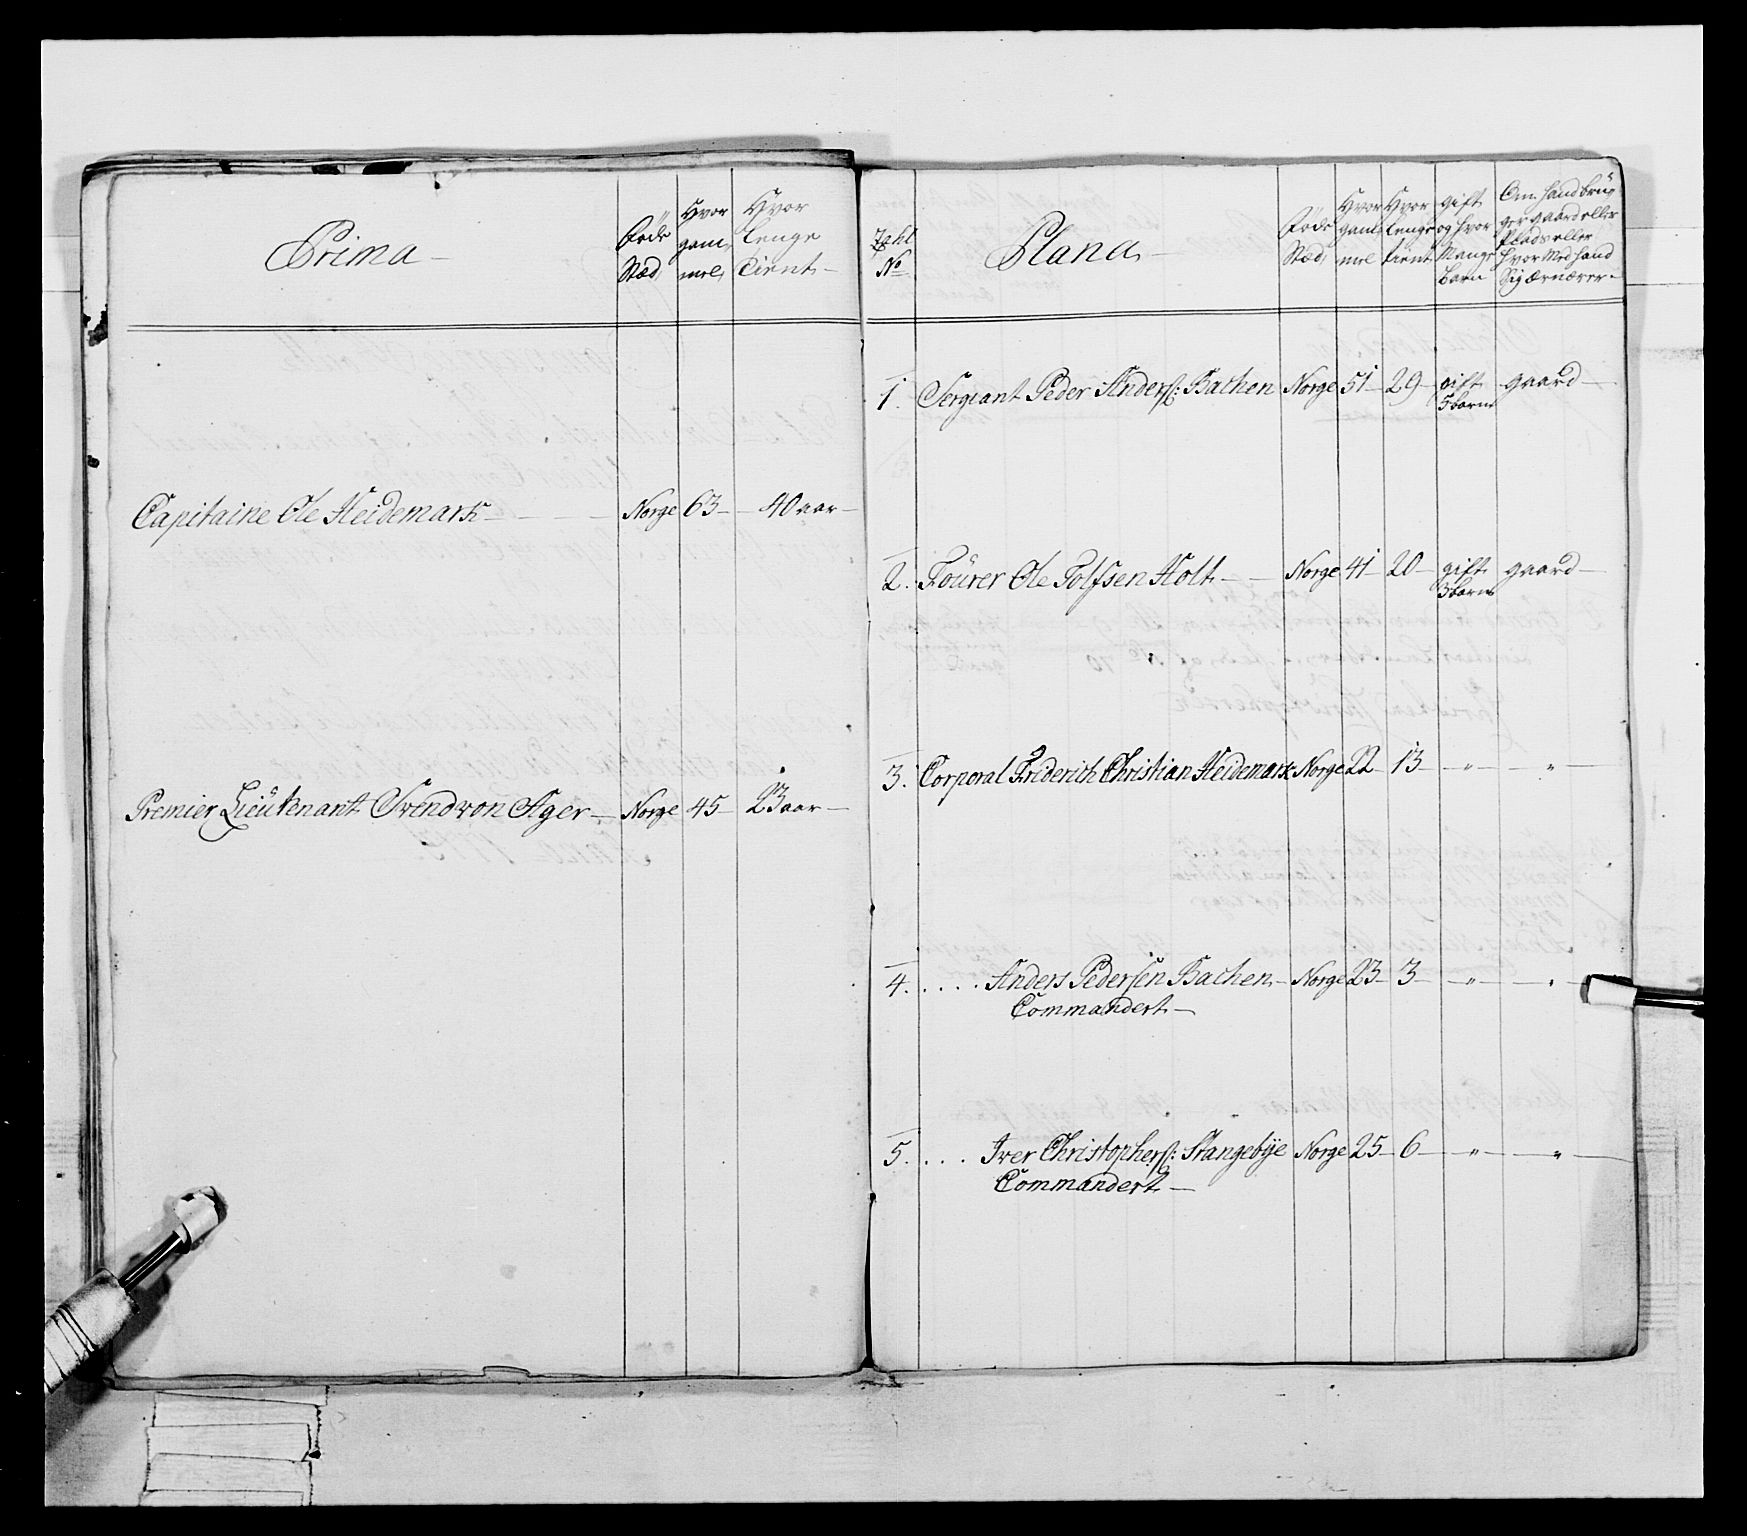 Prima
Føde Hvor Hvor
gam lenge
Stæd mel tient
Capitaine Ole Heidemark Norge 63 40 aar
Premier Lieütenant Svend von Ager Norge 45 23 aar
Plana
Føde Hvor Hvor gift Om hand brü
gam lenge og hvor ger gaard eller
No Stæd mel tient Mange Plads eller
hvor Med hand
børn Sig ærnærer
1. Sergeant Peder Anders: Bachen Norge 51 29 gift gaard
5 børn
2. Foürer Ole Tolfsen Holt Norge 41 20 gift gaard
3 børn
3. Corporal Friderich Christian Heidemark Norge 22 13 " "
4. .... Anders Pedersen Bachen Norge 23 3 " "
Commandert
5. .... Iver Christophers: Stangebÿe Norge 25 6 " "
Commandert